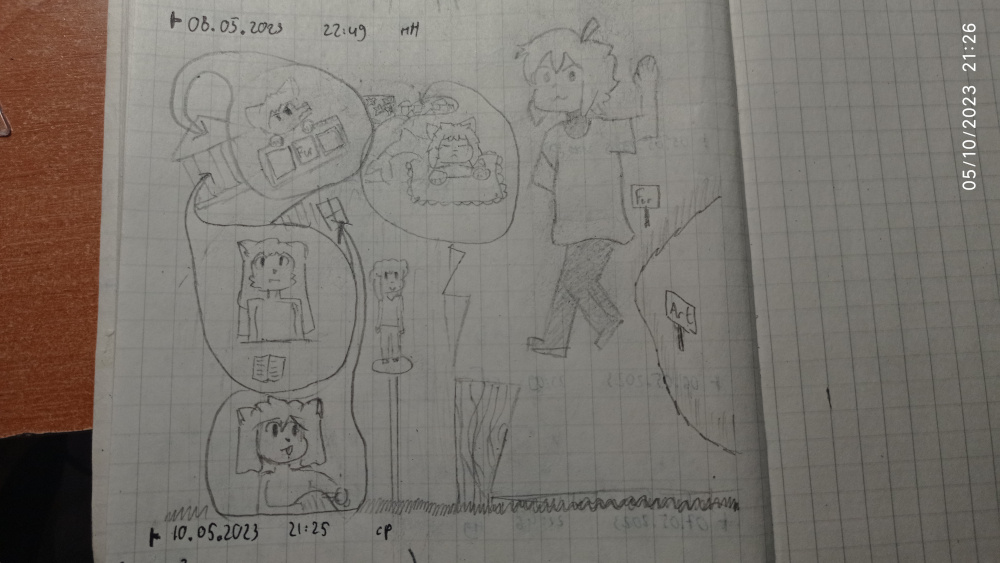 08.05.2023 22:49 пн
Fur
Fur
Art
10.05.2023 21:25 ср
05/10/2023 21:26